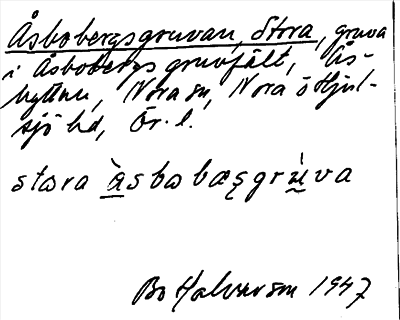 Åsbobergsgruvan, Stora, gruva
i Åsbobergs gruvfält, Ås-
hyttan, Nora sn, Nora o Hjul-
sjö hd, Ör. l.
stɷra ꭤ̀sbɷbæꭍgrʉ̀va
Bo Halvarson 1947